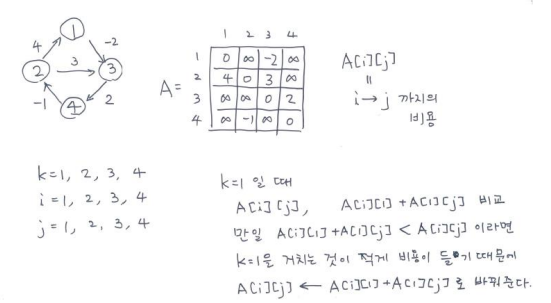 1
4
-2
2
3
3
-1
4
2
1 2 3 4
1 0 ∞ -2 ∞
A= 2 4 0 3 ∞
3 ∞ ∞ 0 2
4 ∞ -1 ∞ 0
A[i][j]
=
i→j 까지의
비용
k=1, 2, 3, 4
i=1, 2, 3, 4
j=1, 2, 3, 4
k=1 일 때
A[i][j], A[i][1]+A[1][j] 비교
만일 A[i][1]+A[1][j] < A[i][j] 이라면
k=1을 거치는 것이 적게 비용이 들기 때문에
A[i][j] ← A[i][1]+A[1][j] 로 바꿔준다.